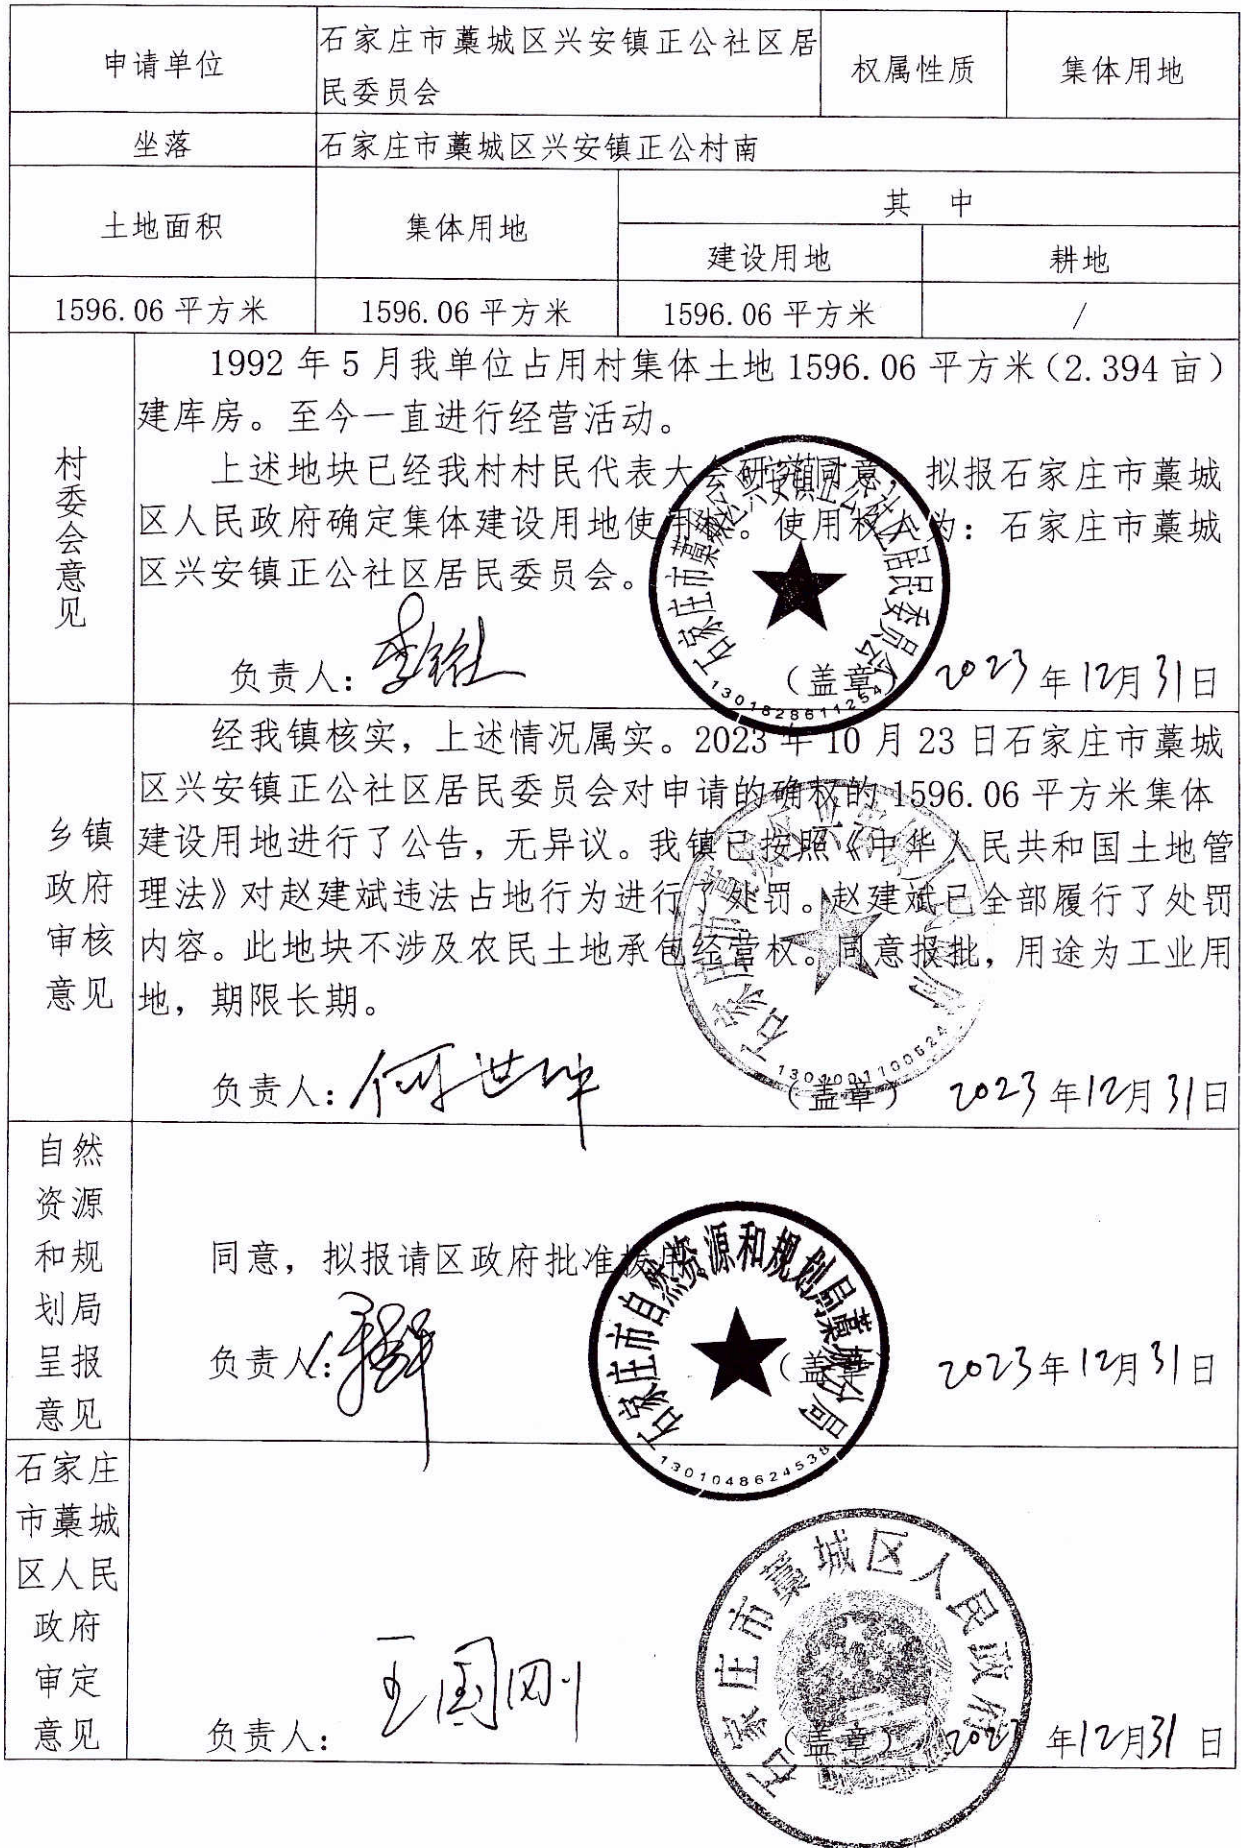 申请单位
石家庄市藁城区兴安镇正公社区居
民委员会
权属性质
集体用地
坐落
石家庄市藁城区兴安镇正公村南
土地面积
集体用地
其 中
建设用地
耕地
1596.06 平方米
1596.06 平方米
1596.06 平方米
/
村委会意见
1992 年 5 月我单位占用村集体土地 1596.06 平方米(2.394 亩)
建库房。至今一直进行经营活动。
上述地块已经我村村民代表大会研究同意，拟报石家庄市藁城
区人民政府确定集体建设用地使用权。使用权人为：石家庄市藁城
区兴安镇正公社区居民委员会。
负责人：
(盖章) 2023 年 12 月 31 日
石家庄市藁城区兴安镇正公社区居民委员会
1301828611254
乡镇
政府
审核
意见
经我镇核实，上述情况属实。2023 年 10 月 23 日石家庄市藁城
区兴安镇正公社区居民委员会对申请的确权的 1596.06 平方米集体
建设用地进行了公告，无异议。我镇已按照《中华人民共和国土地管
理法》对赵建斌违法占地行为进行了处罚。赵建斌已全部履行了处罚
内容。此地块不涉及农民土地承包经营权。同意报批，用途为工业用
地，期限长期。
负责人：何世坤
(盖章) 2023 年 12 月 31 日
自然
资源
和规
划局
呈报
意见
同意，拟报请区政府批准拨用
负责人：
(盖章 2023 年 12 月 31 日
石家庄市自然资源和规划局藁城分局
1301048624538
石家庄
市藁城
区人民
政府
审定
意见
负责人：王国刚
(盖章) 2023 年 12 月 31 日
石家庄市藁城区人民政府